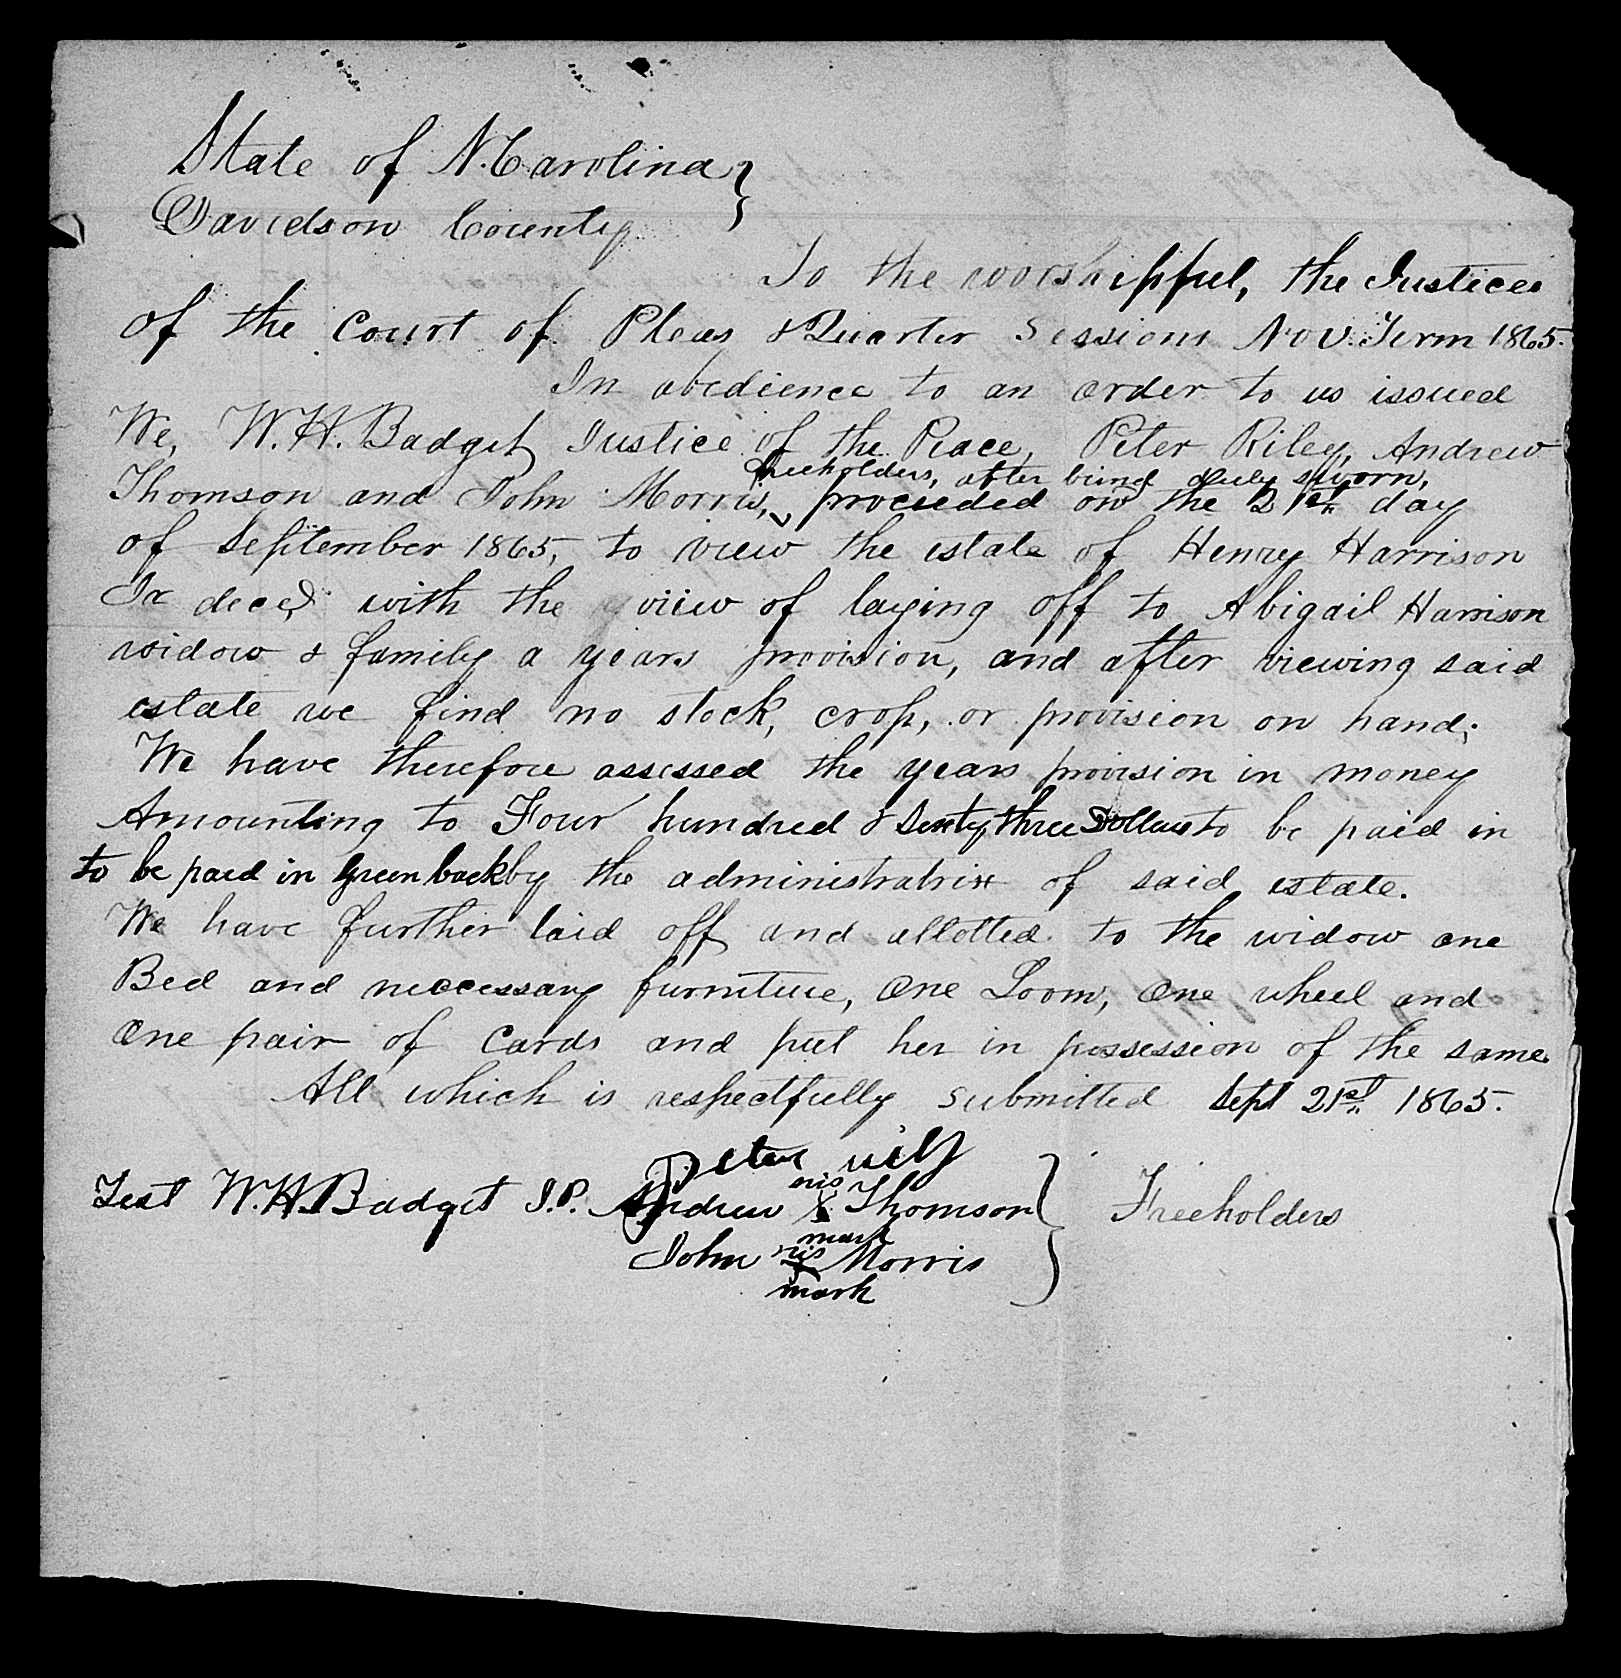 State of N. Carolina }
Davidson County
To the worshipful, the Justices
of the Court of Pleas & Quarter Sessions Nov. Term 1865.
In obedience to an order to us issued
We, W. H. Badget Justice of the Peace, Peter Riley, Andrew
freeholders, after being duly sworn,
Thomson and John Morris, proceeded on the 21st day
of September 1865, to view the estate of Henry Harrison
Jr decd with the view of laying off to Abigail Harrison
widow & family a years provision, and after viewing said
estate we find no stock, crop, or provision on hand;
We have therefore assessed the years provision in money
Amounting to Four hundred & Sixty three Dollars to be paid in
to be paid in Green back by the administratrix of said estate.
We have further laid off and allotted to the widow one
Bed and neccessary furniture, One Loom, One wheel and
One pair of Cards and put her in possession of the same.
All which is respectfully submitted Sept 21st 1865.
Peter rily
his
Test W. H. Badget J. P. Andrew X Thomson } Freeholders
mark
his
John X Morris
mark